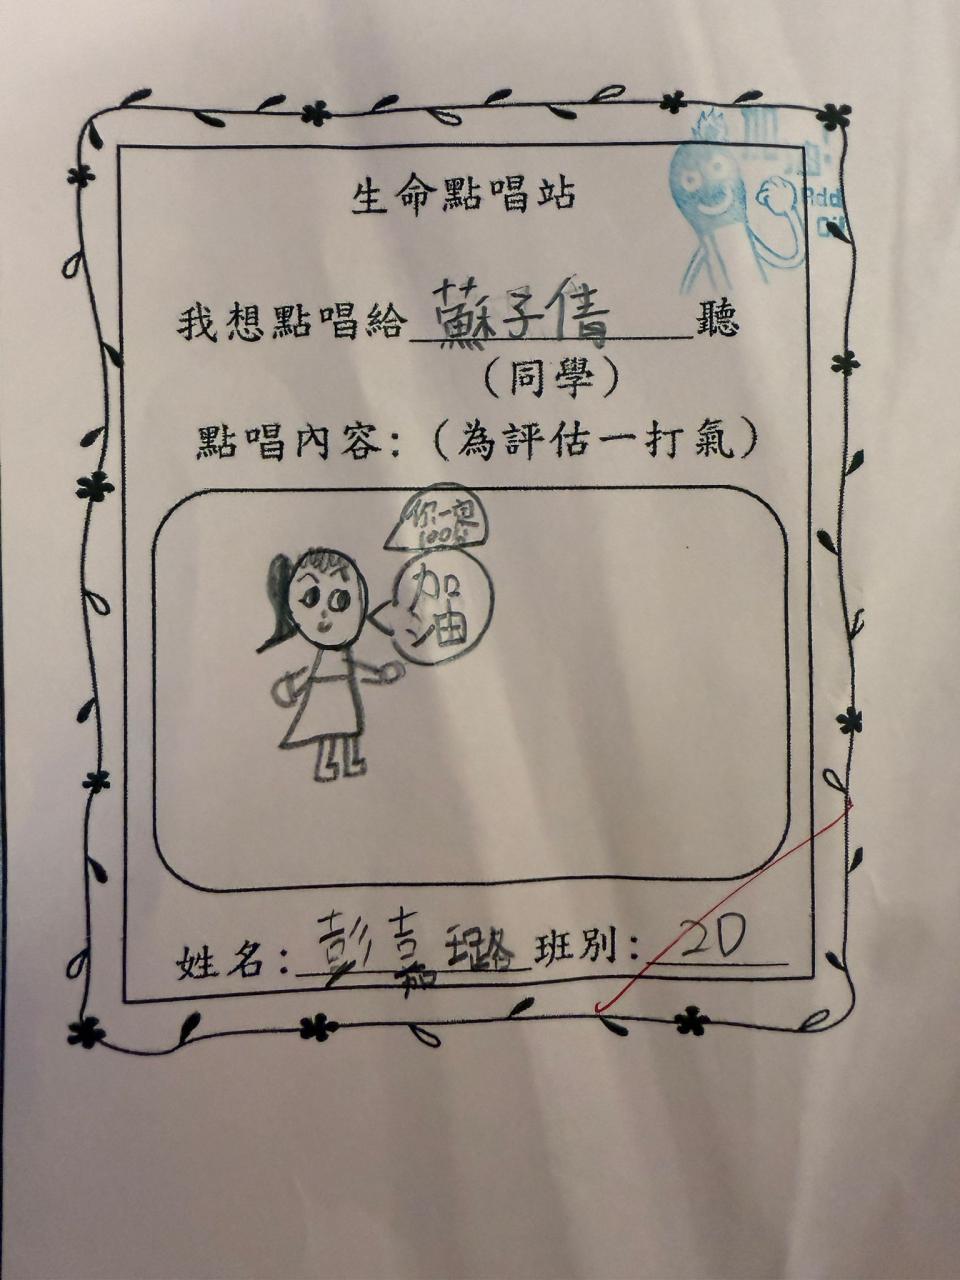 生命點唱站
我想點唱給蘇子倩聽
(同學)
點唱內容:(為評估一打氣)
你一定
100分
加
油
姓名:彭嘉璐 班別:2D